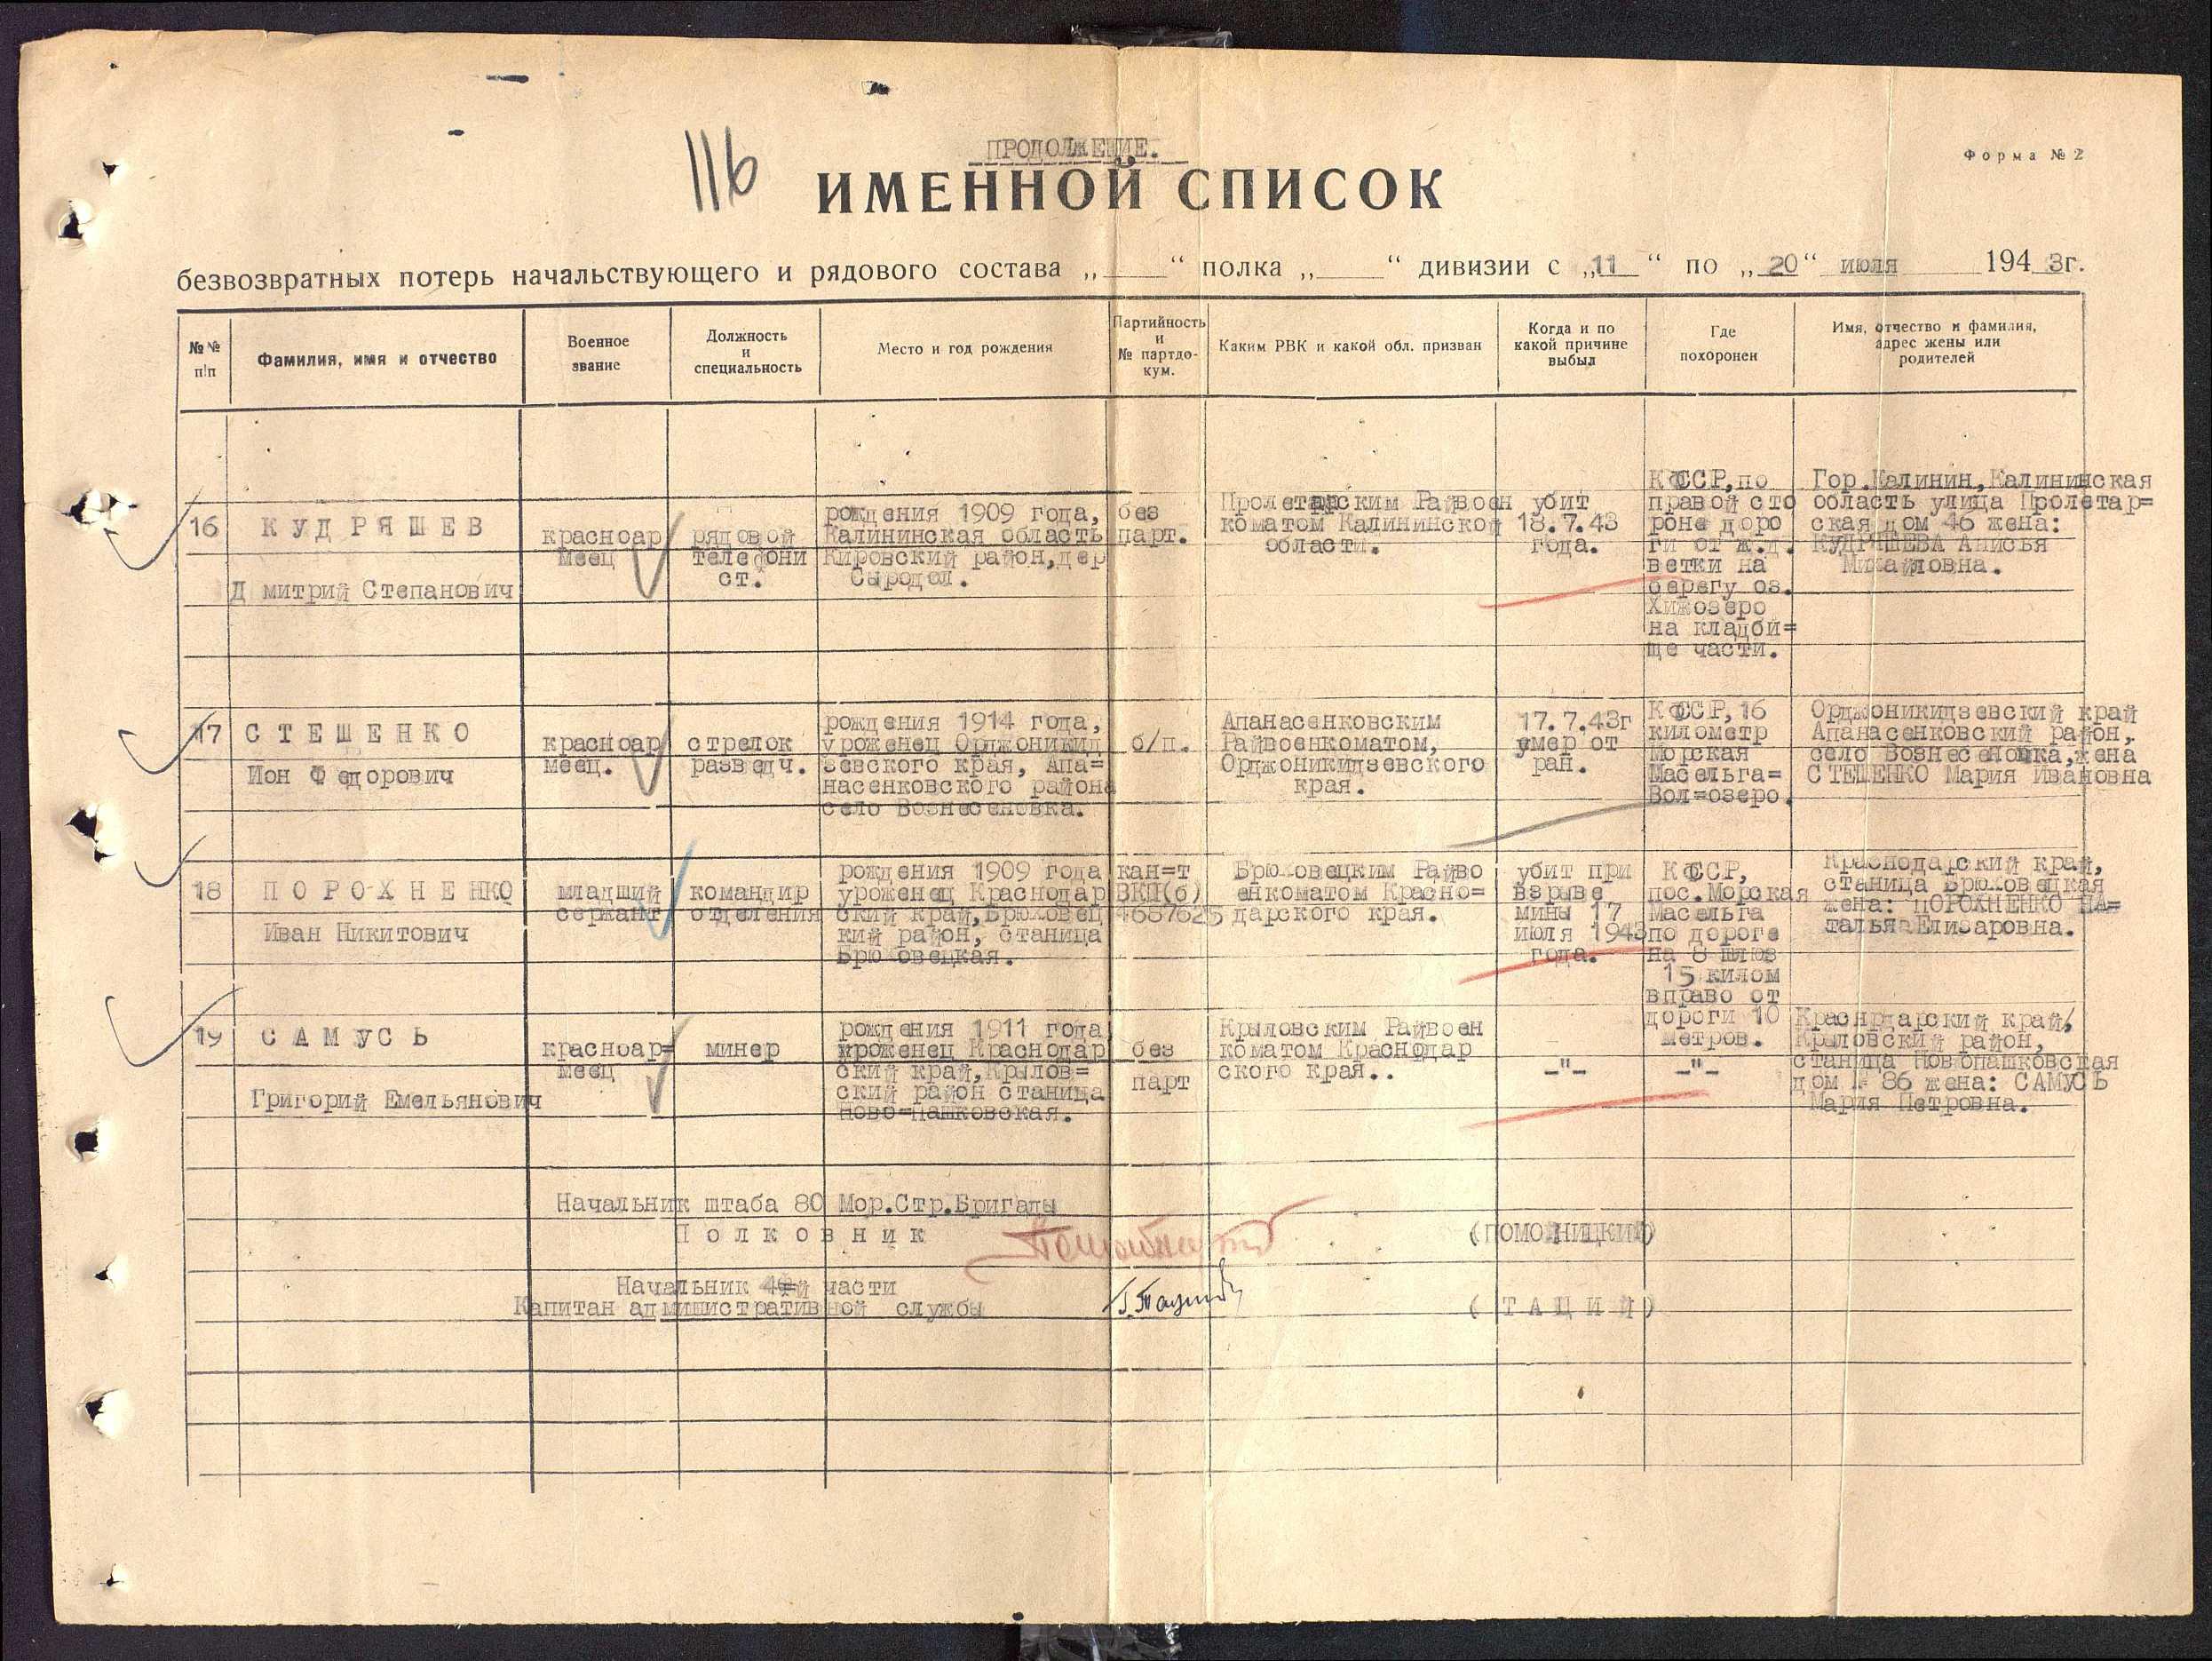 116
ПРОДОЛЖЕНИЕ.
Форма № 2
ИМЕННОЙ СПИСОК
безвозвратных потерь начальствующего и рядового состава „ “ полка „ “ дивизии с „11“ по „20“ июля 1943г.
№№
п/п
Фамилия, имя и отчество
Военное
звание
Должность
и
специальность
Место и год рождения
Партийность
и
№ партдо-
кум.
Каким РВК и какой обл. призван
Когда и по
какой причине
выбыл
Где
похоронен
Имя, отчество и фамилия,
адрес жены или
родителей
16
КУДРЯШЕВ
Дмитрий Степанович
красноар
меец
рядовой
телефони
ст.
рождения 1909 года,
Калининская область
Кировский район,дер
Сыродол.
без
парт.
Пролетарским Райвоен
коматом Калининской
области.
убит
18.7.43
года.
КФССР,по
правой сто
роне доро
ги от ж.д.
ветки на
берегу оз.
Хижозеро
на кладби=
ще части.
Гор.Калинин,Калининская
область улица Пролетар=
ская дом 46 жена:
КУДРЯШЕВА Анисья
Михайловна.
17
СТЕШЕНКО
Ион Федорович
красноар
меец.
стрелок
разведч.
рождения 1914 года,
уроженец Орджоникид
зевского края, Апа=
насенковского района
село Вознесеновка.
б/п.
Апанасенковским
Райвоенкоматом,
Орджоникидзевского
края.
17.7.43г
умер от
ран.
КФССР,16
километр
Морская
Масельга=
Вол=озеро.
Орджоникидзевский край
Апанасенковский район,
село Вознесеновка,жена
СТЕШЕНКО Мария Ивановна
18
ПОРОХНЕНКО
Иван Никитович
младший
сержант
командир
отделения
рождения 1909 года
уроженец Краснодар
ский край,Брюховец
кий район, станица
Брюховецкая.
кан=т
ВКП(б)
4687625
Брюховецким Райво
енкоматом Красно=
дарского края.
убит при
взрыве
мины 17
июля 1943
года.
КФССР,
пос.Морская
Масельга
по дороге
на 8 шлюз
15 килом
вправо от
дороги 10
метров.
Краснодарский край,
станица Брюховецкая
жена: ПОРОХНЕНКО НА=
талья Елизаровна.
19
САМУСЬ
Григорий Емельянович
красноар=
меец
минер
рождения 1911 года
уроженец Краснодар
ский край,Крылов=
ский район станица
Ново=Пашковская.
без
парт
Крыловским Райвоен
коматом Краснодар
ского края..
-"-
-"-
Краснрдарский край,
Крыловский район,
станица Новопашковская
дом № 86 жена: САМУСЬ
Мария Петровна.
Начальник штаба 80 Мор.Стр.Бригады
Полковник
(ПОМОЙНИЦКИЙ)
Начальник 4й части
Капитан административной службы
(ТАЦИЙ)